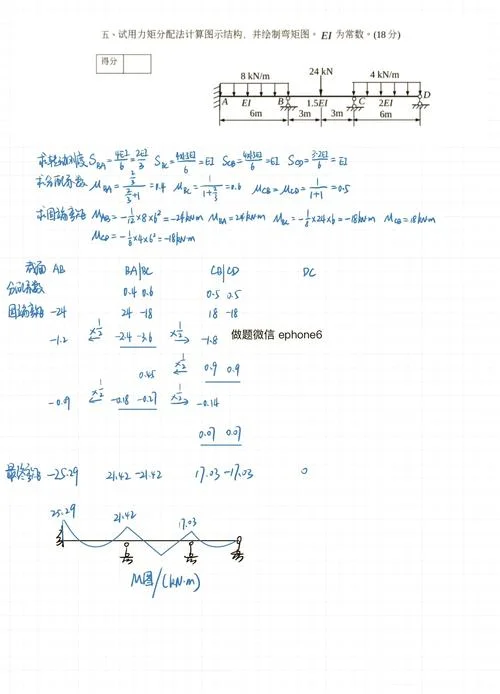 五、试用力矩分配法计算图示结构，并绘制弯矩图。EI 为常数。(18 分)
得分
8 kN/m
24 kN
4 kN/m
A
B
1.5EI
C
2EI
D
6m
3m
3m
6m
求转动刚度 S_BA=4EI/6=2EI/3 S_BC=4×1.5EI/6=EI S_CB=4×1.5EI/6=EI S_CD=3·2EI/6=EI
求分配系数 μ_BA=(2/3)/(2/3+1)=0.4 μ_BC=1/(1+2/3)=0.6 μ_CB=μ_CD=1/(1+1)=0.5
求固端弯矩 M_AB=-1/12×8×6²=-24kN·m M_BA=24kN·m M_BC=-1/8×24×6=-18kN·m M_CB=18kN·m
M_CD=-1/8×4×6²=-18kN·m
截面 AB BA|BC CB|CD DC
分配系数 0.4 0.6 0.5 0.5
固端弯矩 -24 24 -18 18 -18
-1.2 ×1/2 ← -2.4 -3.6 ×1/2 → -1.8 做题微信 ephone6
0.45 ×1/2 ← 0.9 0.9
-0.09 ×1/2 ← -0.18 -0.27 ×1/2 → -0.14
0.07 0.07
最终弯矩 -25.29 21.42 -21.42 17.03 -17.03 0
25.29
21.42
17.03
M图/(kN·m)